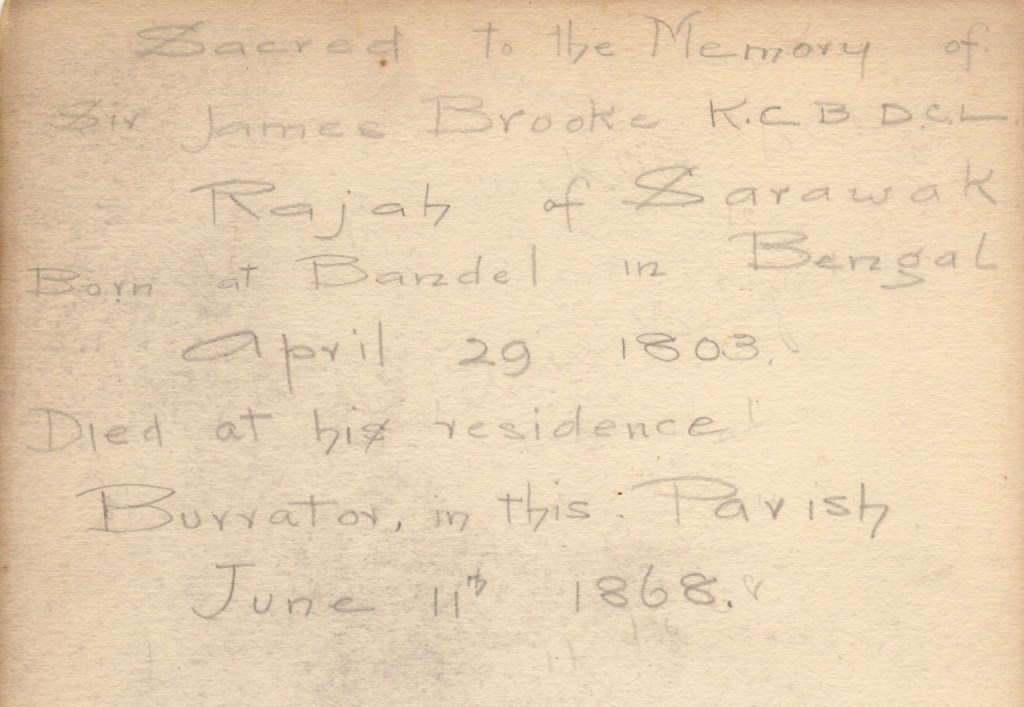 Sacred to the Memory of
Sir James Brooke K.C.B D.C.L.
Rajah of Sarawak
Born at Bandel in Bengal
April 29 1803.
Died at his residence
Burrator, in this Parish
June 11th 1868.